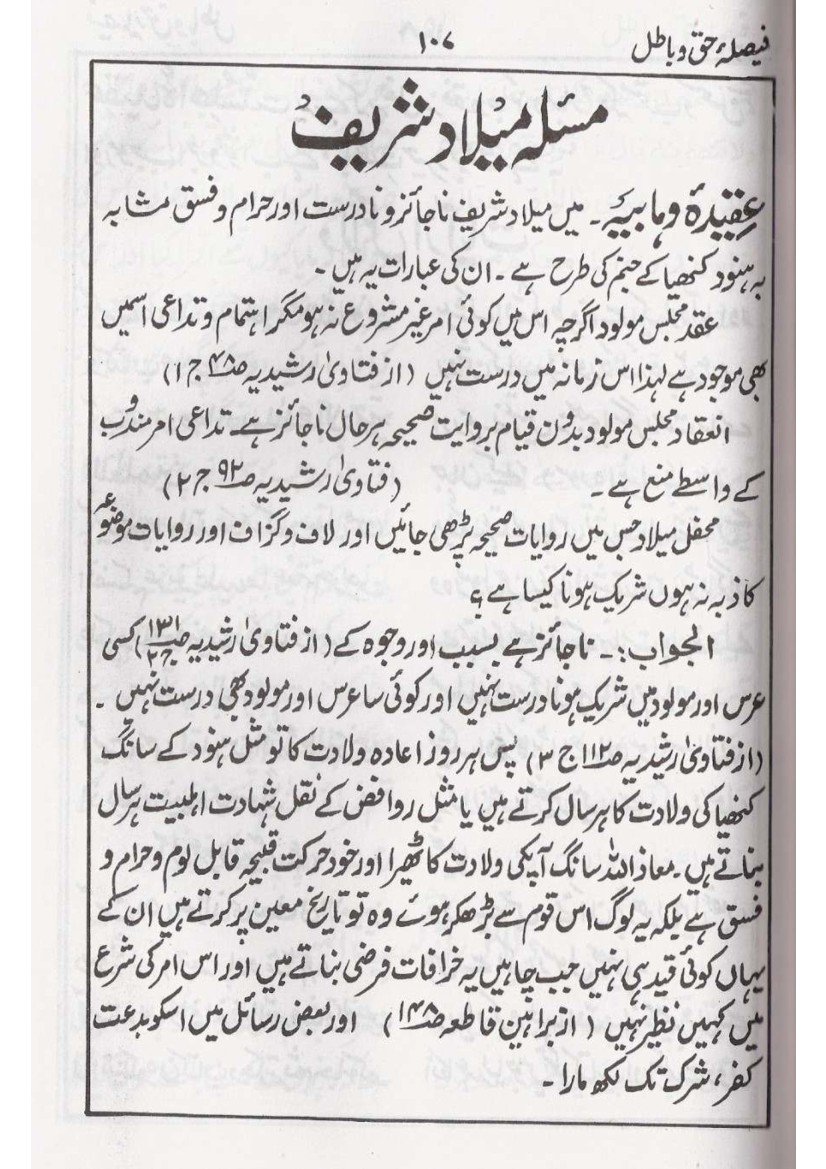 فیصلۂ حق و باطل
۱۰۷
مسئلہ میلاد شریف
عقیدۂ وہابیہ ۔ میں میلاد شریف ناجائز و نادرست اور حرام و فسق مشابہ
بہ ہنود کنھیا کے جنم کی طرح ہے ۔ ان کی عبارات یہ ہیں ۔
عقد مجلس مولود اگرچہ اس میں کوئی امر غیر مشروع نہ ہو مگر اہتمام و تداعی اسمیں
بھی موجود ہے لہذا اس زمانہ میں درست نہیں ( از فتاویٰ رشیدیہ صـ۴۸ ج ۱ )
انعقاد مجلس مولود بدون قیام بروایت صحیحہ ہر حال ناجائز ہے۔ تداعی امر مندوب
کے واسطے منع ہے ۔ ( فتاویٰ رشیدیہ صـ۹۲ ج ۲ )
محفل میلاد جس میں روایات صحیحہ پڑھی جائیں اور لاف و گزاف اور روایات موضوعہ
کاذبہ نہ ہوں شریک ہونا کیسا ہے ؟
الجواب :۔ ناجائز ہے بسبب اور وجوہ کے ( از فتاویٰ رشیدیہ صـ۱۳۱ ج۲ ) کسی
عرس اور مولود میں شریک ہونا درست نہیں اور کوئی سا عرس اور مولود بھی درست نہیں ۔
( از فتاویٰ رشیدیہ صـ۱۱۲ ج ۳ ) پس ہر روز اعادہ ولادت کا تو مثل ہنود کے سانگ
کنھیا کی ولادت کا ہر سال کرتے ہیں یا مثل روافض کے نقل شہادت اہلبیت ہر سال
بناتے ہیں ۔ معاذ اللہ سانگ آپکی ولادت کا ٹھیرا اور خود حرکت قبیحہ قابل لوم و حرام و
فسق ہے بلکہ یہ لوگ اس قوم سے بڑھکر ہوئے وہ تو تاریخ معین پر کرتے ہیں ان کے
یہاں کوئی قید ہی نہیں جب چاہیں یہ خرافات فرضی بناتے ہیں اور اس امر کی شرع
میں کہیں نظیر نہیں ( از براہین قاطعہ صـ۱۴۸ ) اور بعض رسائل میں اسکو بدعت
کفر ، شرک تک لکھ مارا ۔